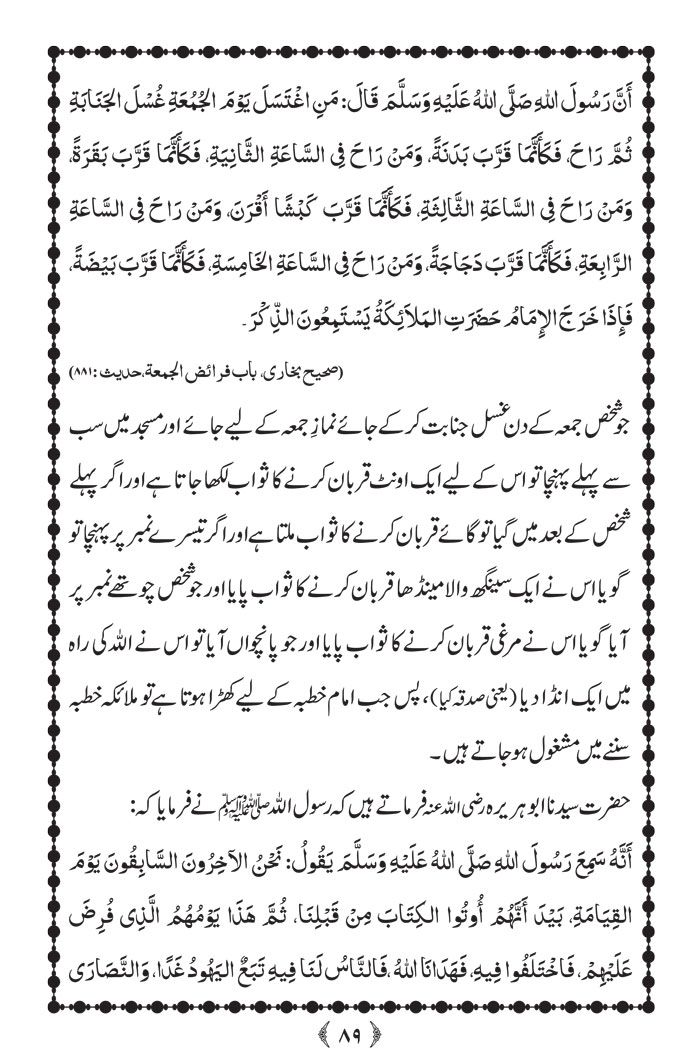 أَنَّ رَسُولَ اللهِ صَلَّى اللهُ عَلَيْهِ وَسَلَّمَ قَالَ: مَنِ اغْتَسَلَ يَوْمَ الجُمُعَةِ غُسْلَ الجَنَابَةِ
ثُمَّ رَاحَ، فَكَأَنَّمَا قَرَّبَ بَدَنَةً، وَمَنْ رَاحَ فِي السَّاعَةِ الثَّانِيَةِ، فَكَأَنَّمَا قَرَّبَ بَقَرَةً،
وَمَنْ رَاحَ فِي السَّاعَةِ الثَّالِثَةِ، فَكَأَنَّمَا قَرَّبَ كَبْشًا أَقْرَنَ، وَمَنْ رَاحَ فِي السَّاعَةِ
الرَّابِعَةِ، فَكَأَنَّمَا قَرَّبَ دَجَاجَةً، وَمَنْ رَاحَ فِي السَّاعَةِ الخَامِسَةِ، فَكَأَنَّمَا قَرَّبَ بَيْضَةً،
فَإِذَا خَرَجَ الإِمَامُ حَضَرَتِ المَلاَئِكَةُ يَسْتَمِعُونَ الذِّكْرَ۔
(صحیح بخاری، باب فرائض الجمعة، حدیث: ۸۸۱)
جو شخص جمعہ کے دن غسل جنابت کر کے جائے نمازِ جمعہ کے لیے جائے اور مسجد میں سب
سے پہلے پہنچا تو اس کے لیے ایک اونٹ قربان کرنے کا ثواب لکھا جاتا ہے اور اگر پہلے
شخص کے بعد میں گیا تو گائے قربان کرنے کا ثواب ملتا ہے اور اگر تیسرے نمبر پر پہنچا تو
گویا اس نے ایک سینگھ والا مینڈھا قربان کرنے کا ثواب پایا اور جو شخص چوتھے نمبر پر
آیا گویا اس نے مرغی قربان کرنے کا ثواب پایا اور جو پانچواں آیا تو اس نے اللہ کی راہ
میں ایک انڈا دیا (یعنی صدقہ کیا)، پس جب امام خطبہ کے لیے کھڑا ہوتا ہے تو ملائکہ خطبہ
سننے میں مشغول ہو جاتے ہیں۔
حضرت سیدنا ابو ہریرہ رضی اللہ عنہ فرماتے ہیں کہ رسول اللہ صلی اللہ علیہ وسلم نے فرمایا کہ:
أَنَّهُ سَمِعَ رَسُولَ اللهِ صَلَّى اللهُ عَلَيْهِ وَسَلَّمَ يَقُولُ: نَحْنُ الآخِرُونَ السَّابِقُونَ يَوْمَ
القِيَامَةِ، بَيْدَ أَنَّهُمْ أُوتُوا الكِتَابَ مِنْ قَبْلِنَا، ثُمَّ هَذَا يَوْمُهُمُ الَّذِي فُرِضَ
عَلَيْهِمْ، فَاخْتَلَفُوا فِيهِ، فَهَدَانَا اللهُ، فَالنَّاسُ لَنَا فِيهِ تَبَعٌ اليَهُودُ غَدًا، وَالنَّصَارَى
﴿۸۹﴾